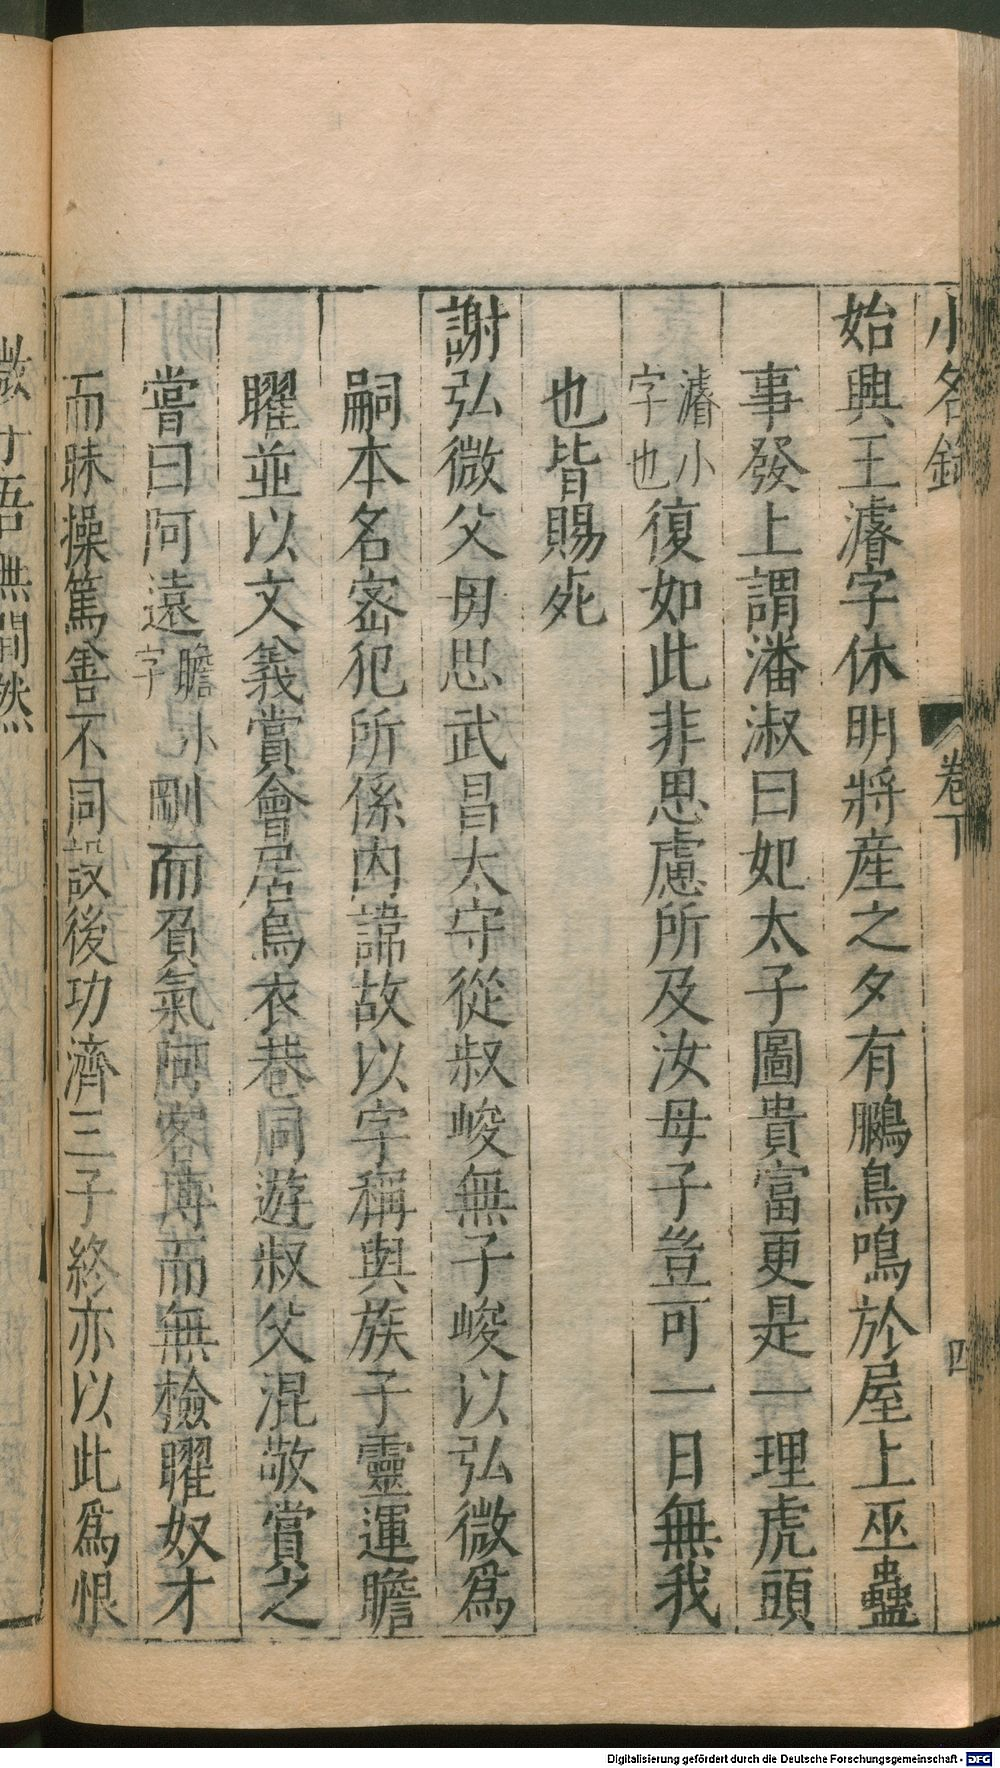 小名錄 卷下 四
始興王濬字休明將産之夕有鵩鳥鳴於屋上巫蠱
事發上謂潘淑曰妃太子圖貴富更是一理虎頭
濬小字也復如此非思慮所及汝母子豈可一日無我
也皆賜死
謝弘微父毋思武昌太守從叔峻無子峻以弘微爲
嗣本名密犯所係內諱故以字稱與族子靈運瞻
曜並以文義賞會居烏衣巷同遊叔父混敬賞之
嘗曰阿遠瞻小字剛而負氣阿客博而無檢曜奴才
而昧操篤善不同設後功濟三子終亦以此爲恨
微 吾無間然
Digitalisierung gefördert durch die Deutsche Forschungsgemeinschaft - DFG